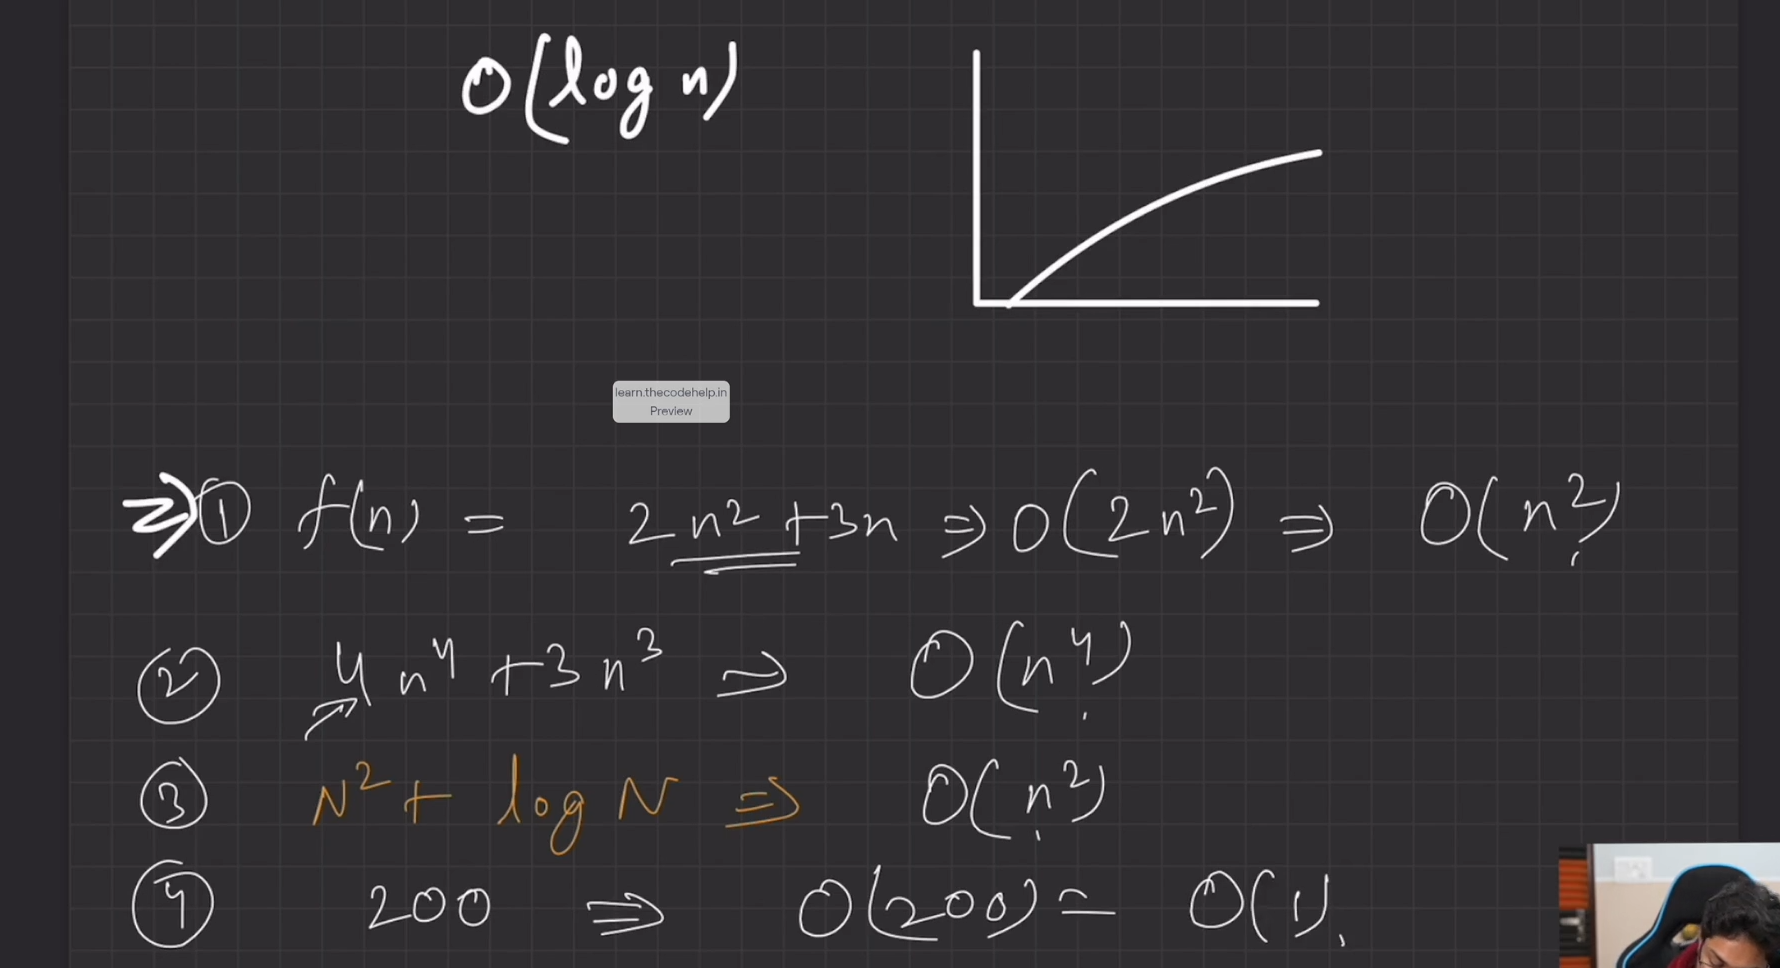 O(log n)
learn.thecodehelp.in
Preview
⇒ ① f(n) = 2n² + 3n ⇒ O(2n²) ⇒ O(n²)
② 4n⁴ + 3n³ ⇒ O(n⁴)
③ N² + log N ⇒ O(n²)
④ 200 ⇒ O(200) = O(1)